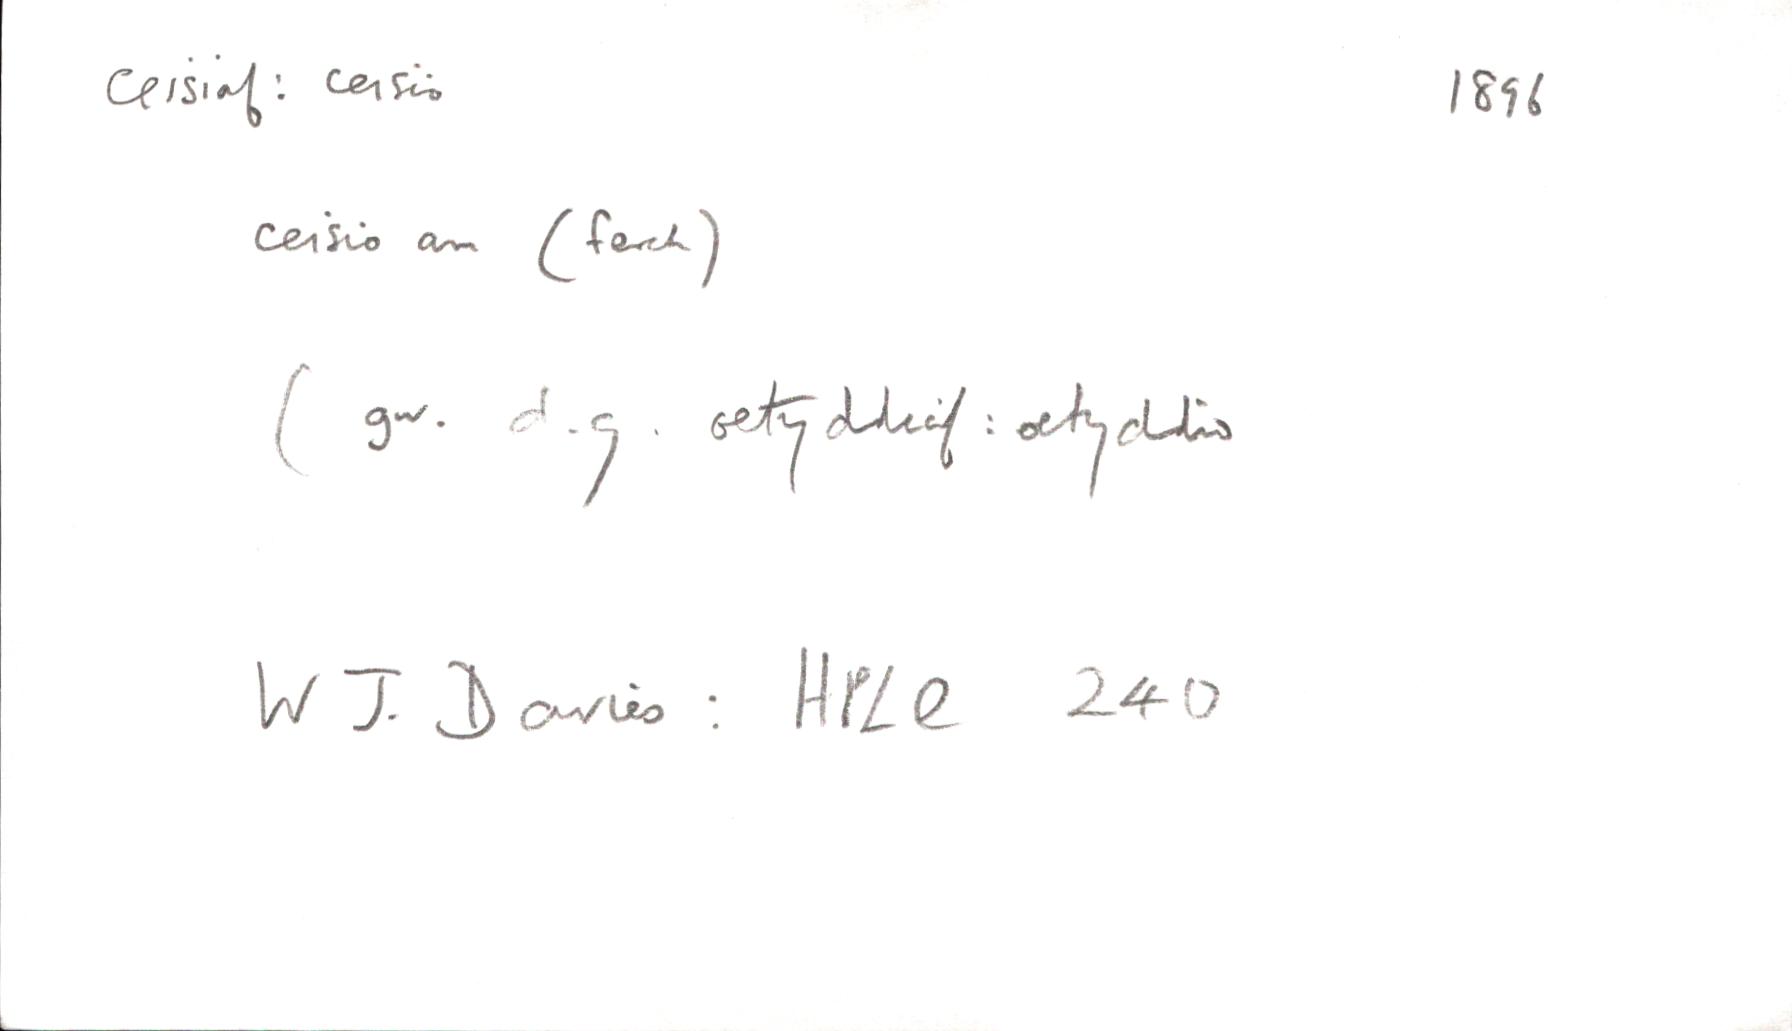 ceisiaf: ceisio 1896
ceisio am (ferch)
( gw. d.g. oetyddiaf: oetyddio
W J. Davies: HPLle 240